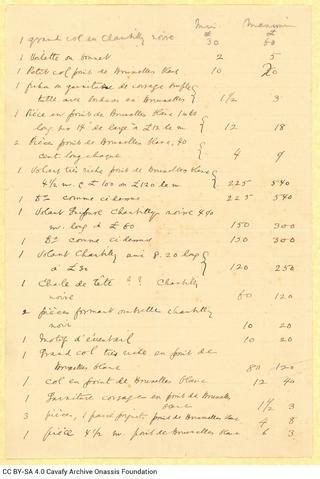 Mini Maximi
£ £
1 grand col en Chantilly noire 30 60
1 Voilette ou bonnet 2 5
1 Petit col point de Bruxelles blanc 10 20
1 fichu ou garniture de corsage
tulle avec de Bruxelles 1 1/2 3
1 Pièce en point de Bruxelles
long. de large à le m 12 18
2 Pièces point de Bruxelles, 90
cent. long chaque 4 9
1 Volant très riche point de Bruxelles blanc
4 1/2 m. à £ 100 ou £ 120 le m 225 540
1 Do comme ci dessus 225 540
1 Volant Chantilly noire 4 90
m. long à £ 60 150 300
1 Do comme ci dessus 150 300
1 Volant Chantilly uni 8.20 long
à £ 30 120 250
1 Chale de Tête ?? Chantilly
noire 60 120
2 pièces formant ombrelle chantilly
noir 10 20
1 Motif d'éventail 10 20
1 Grand col très riche en point de
Bruxelles blanc 80 120
1 col en point de Bruxelles blanc 12 40
1 Garniture corsage en point de Bruxelles
blanc 1 1/2 3
3 pièces, 1 point de Bruxelles blanc 4 8
1 pièce 4 1/2 m. point de Bruxelles blanc 6 3
CC BY-SA 4.0 Cavafy Archive Onassis Foundation